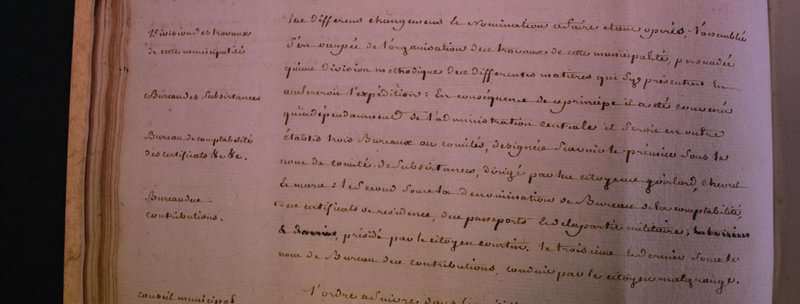 Division des travaux
de cette municipalité
Bureau des Subsistances
Bureau de comptabilité
des certificats &c &c.
Bureau des
contributions.
conseil municipal
Les differens changemens & Nomination a faire etant operés, l'assemblée
S'est occupée de l'organisation des travaux de cette municipalité, persuadée
qu'une division methodique des differentes matieres qui s'y presentent En
acelereroit l'expédition: En conséquence de ce principe il a été convenu
qu'independamment de l'administration centrale il Seroit en outre
établis trois Bureaux ou comités, designés Savoir le premier Sous le
nom de comité de Subsistances, dirigé par les citoyens
Le maire: le Second Sous la denomination de Bureau de la comptabilité,
des certificats de residence, des passeports Et de la partie militaire;
présidé par le citoyen courtin. le troisieme Et dernier Sous le
nom de Bureau des contributions, conduit par le citoyen malgrange.
L'ordre a Suivre dans